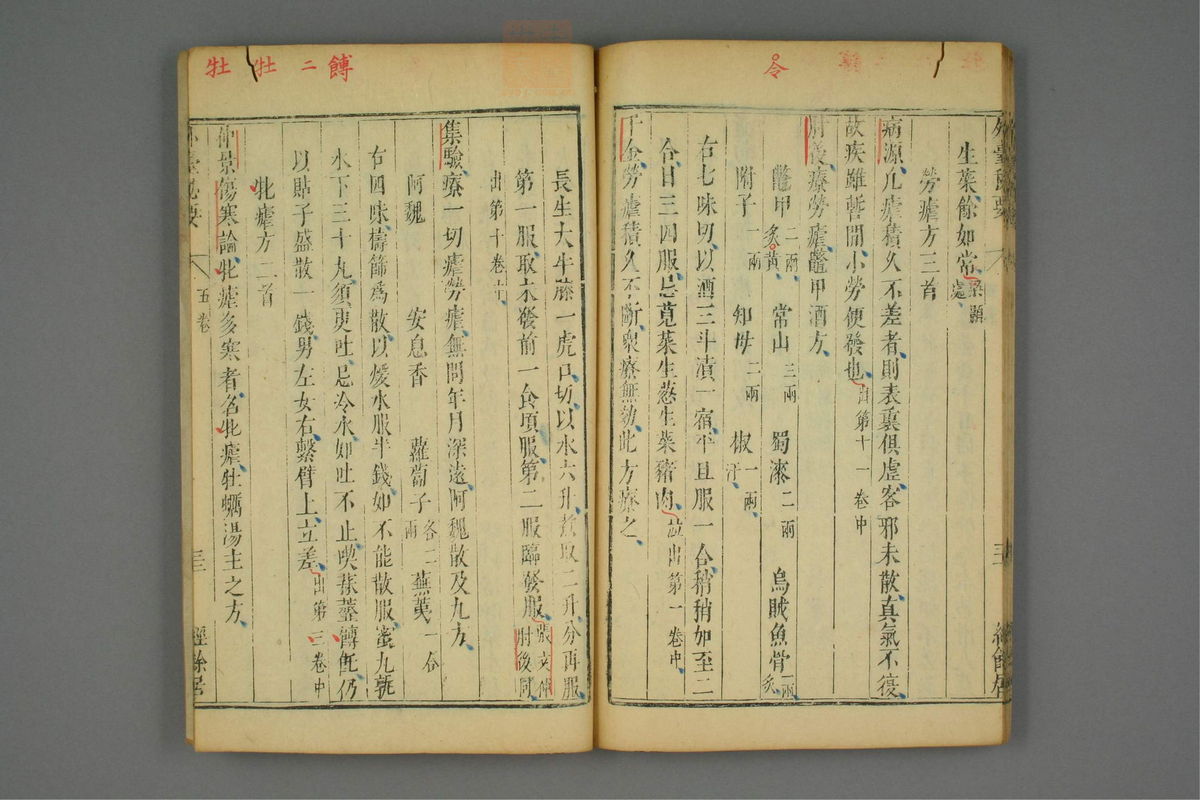 令
外臺秘要
三
經餘居
生菜餘如常
梁顯
處
勞瘧方三首
病源凡瘧積久不差者則表裏俱虛客邪未散真氣不復
故疾雖暫間小勞便發也出第十一卷中
肘後療勞瘧鼈甲酒方
鼈甲二兩炙黃 常山三兩 蜀漆二兩 烏賊魚骨一兩炙
附子一兩 知母二兩 椒一兩汗
右七味切以酒三斗漬一宿平旦服一合稍稍加至二
合日三四服忌莧菜生葱生菜豬肉並出第一卷中
千金勞瘧積久不斷衆療無効此方療之
餺 二 牡 牡
長生大牛膝一虎口切以水六升煮取二升分再服
第一服取未發前一食頃服第二服臨發服張文仲肘後同
出第十卷中
集驗療一切瘧勞瘧無問年月深遠阿魏散及丸方
阿魏 安息香 蘿蔔子各二兩 蕪荑一合
右四味擣篩爲散以煖水服半錢如不能散服蜜丸
水下三十丸須吏吐忌冷水如吐不止喫蒸薑餺飥仍
以貼子盛散一錢男左女右繫臂上立差出第三卷中
牝瘧方二首
仲景傷寒論牝瘧多寒者名牝瘧牡蠣湯主之方
外臺秘要
五卷
三
經餘居